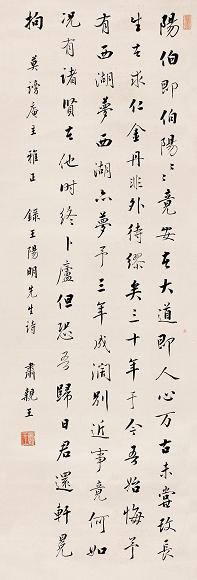 陽伯即伯陽〻〻竟安在大道即人心万古未嘗改長
生在求仁金丹非外待繆矣三十年于今吾始悔予
有西湖夢西湖亦夢予三年成闊別近事竟何如
況有諸賢在他時終卜廬但恐吾歸日君還軒冕
拘
莫謗庵主雅正 錄王陽明先生詩 肅親王